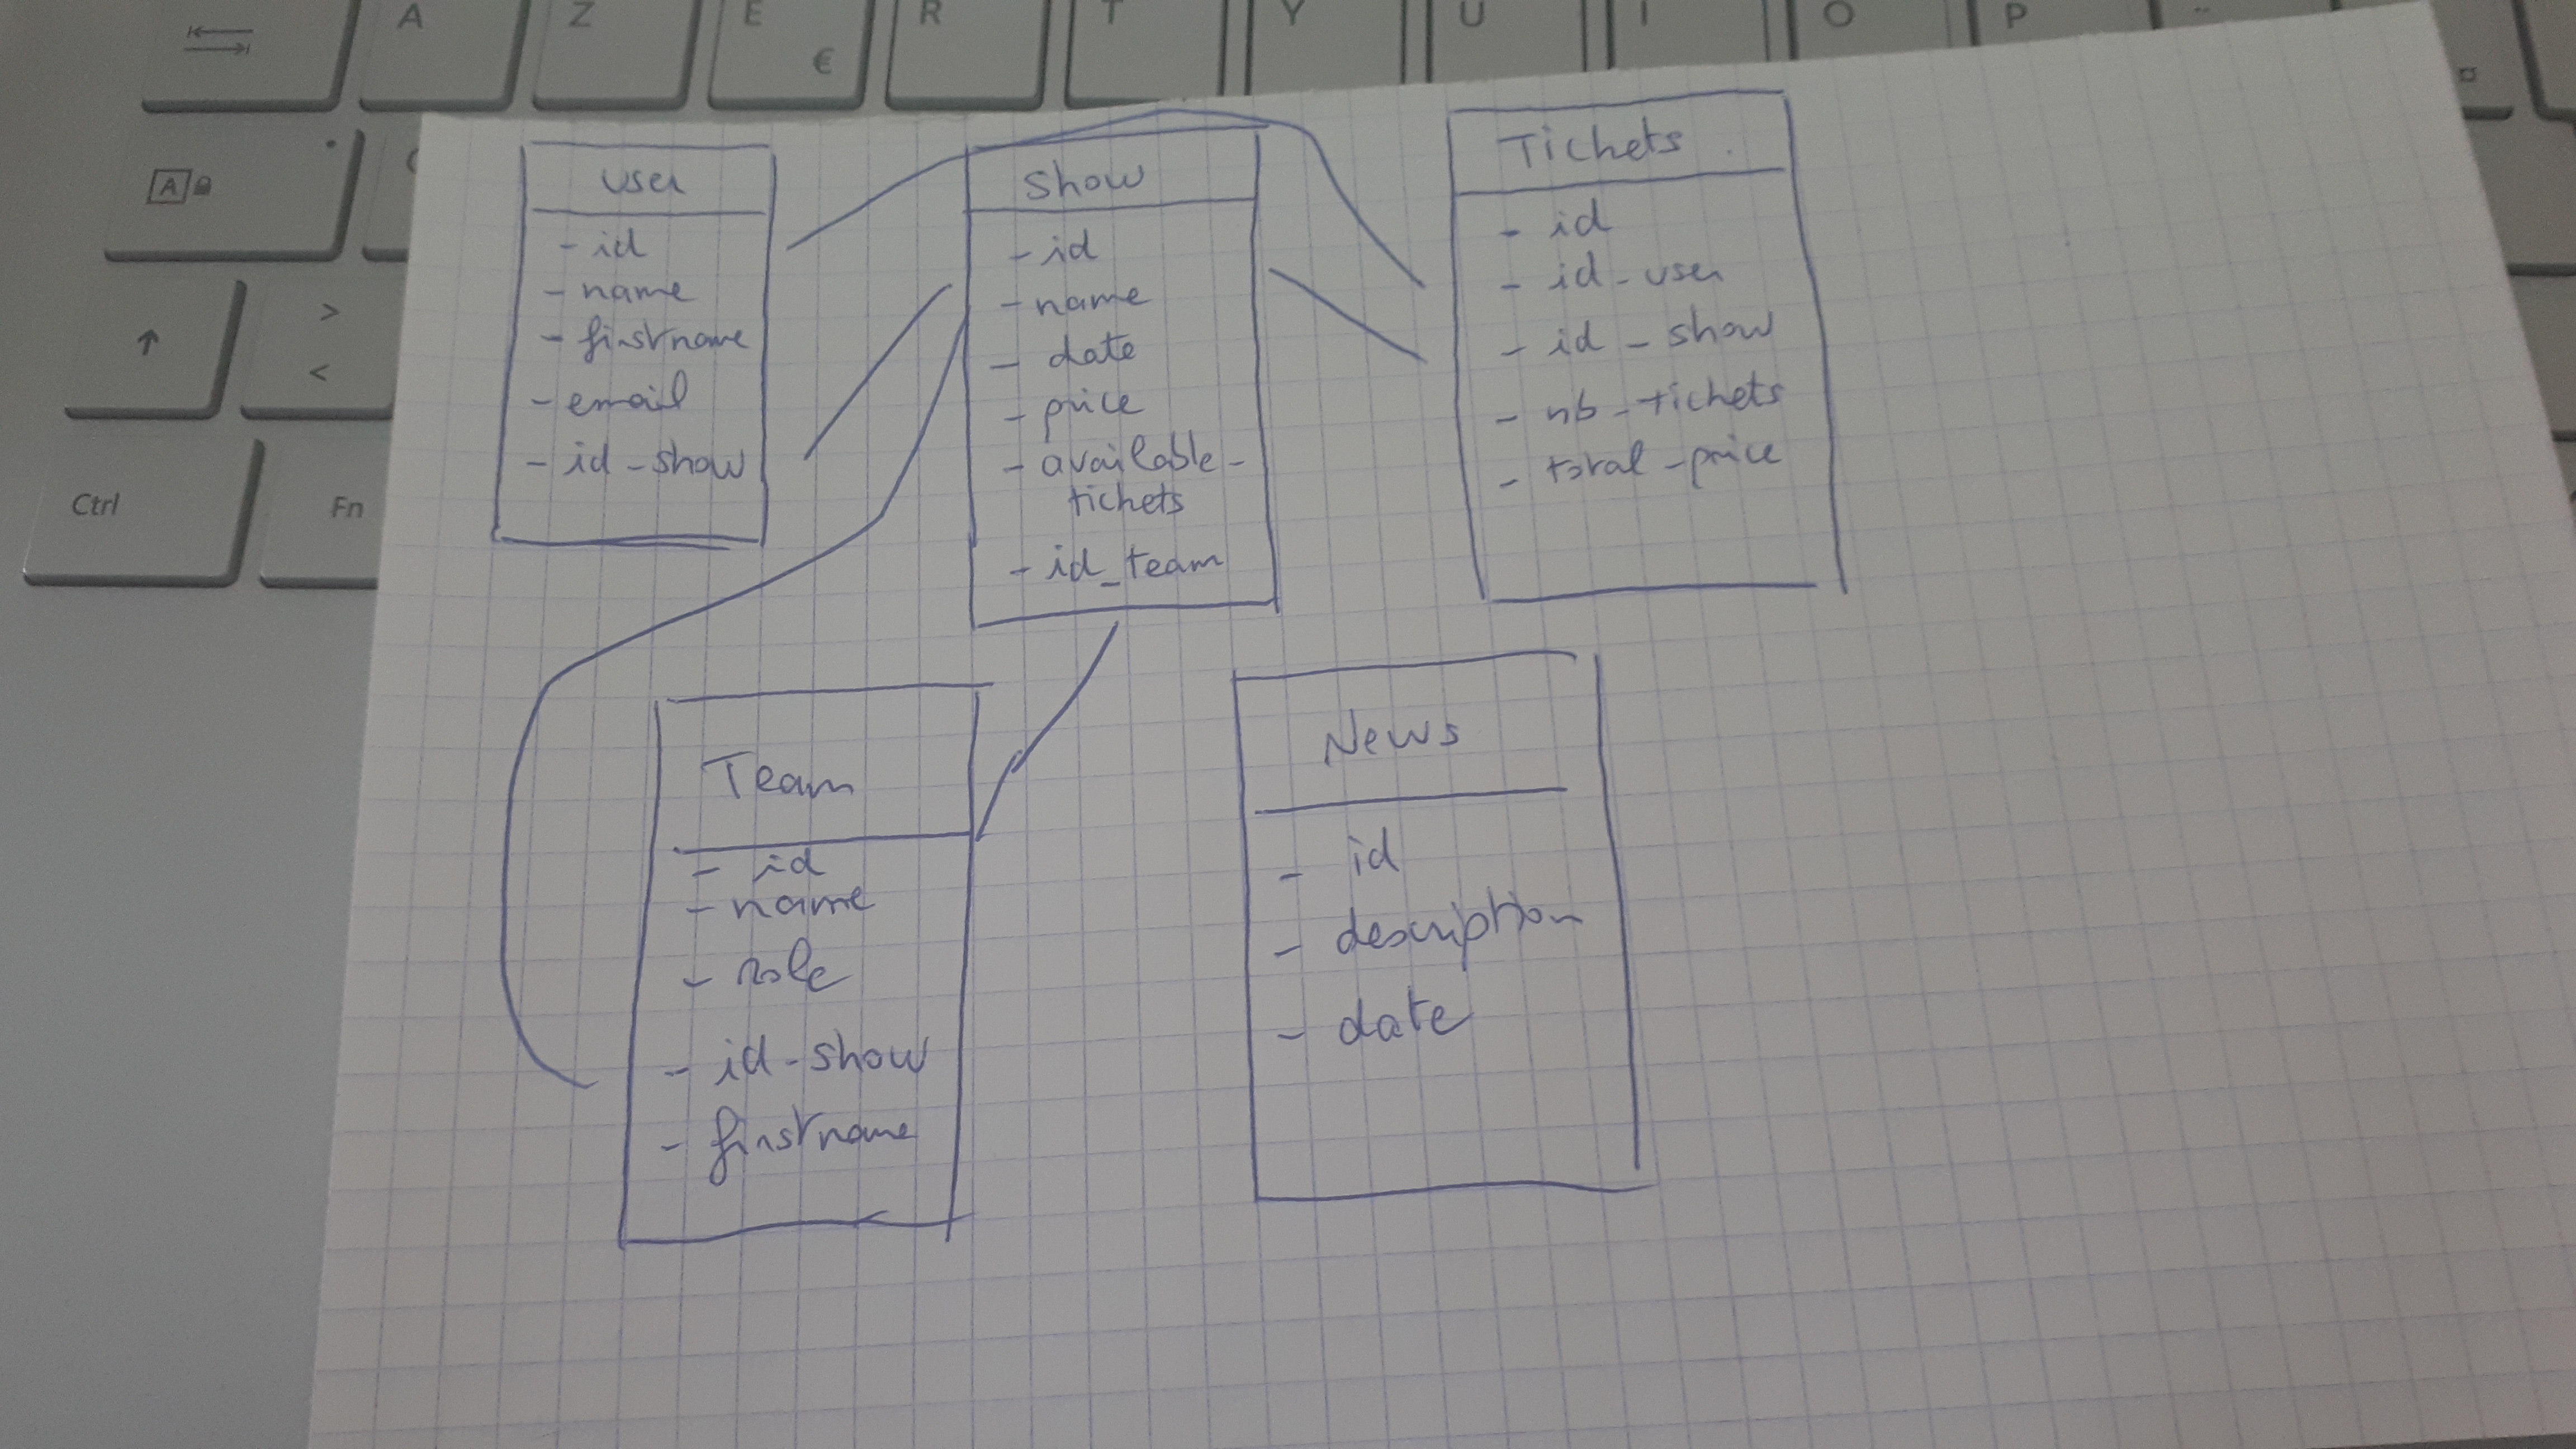 A Z E R T Y U I O P
€
A
>
<
Ctrl Fn
user
- id
- name
- firstname
- email
- id-show
Show
- id
- name
- date
- price
- available-
tickets
- id_team
Tickets
- id
- id-user
- id-show
- nb-tickets
- total-price
Team
- id
- name
- role
- id-show
- firstname
News
- id
- description
- date